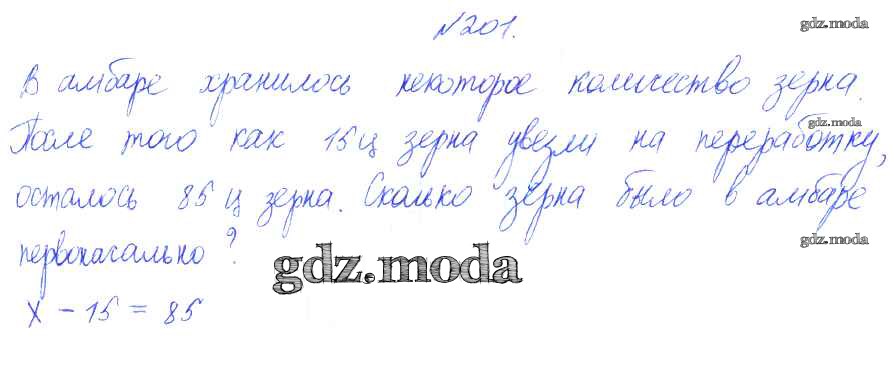 №201.
gdz.moda
В амбаре хранилось некоторое количество зерна.
gdz.moda
После того как 15ц зерна увезли на переработку,
осталось 85 ц зерна. Сколько зерна было в амбаре
первоначально?
gdz.moda
gdz.moda
х - 15 = 85